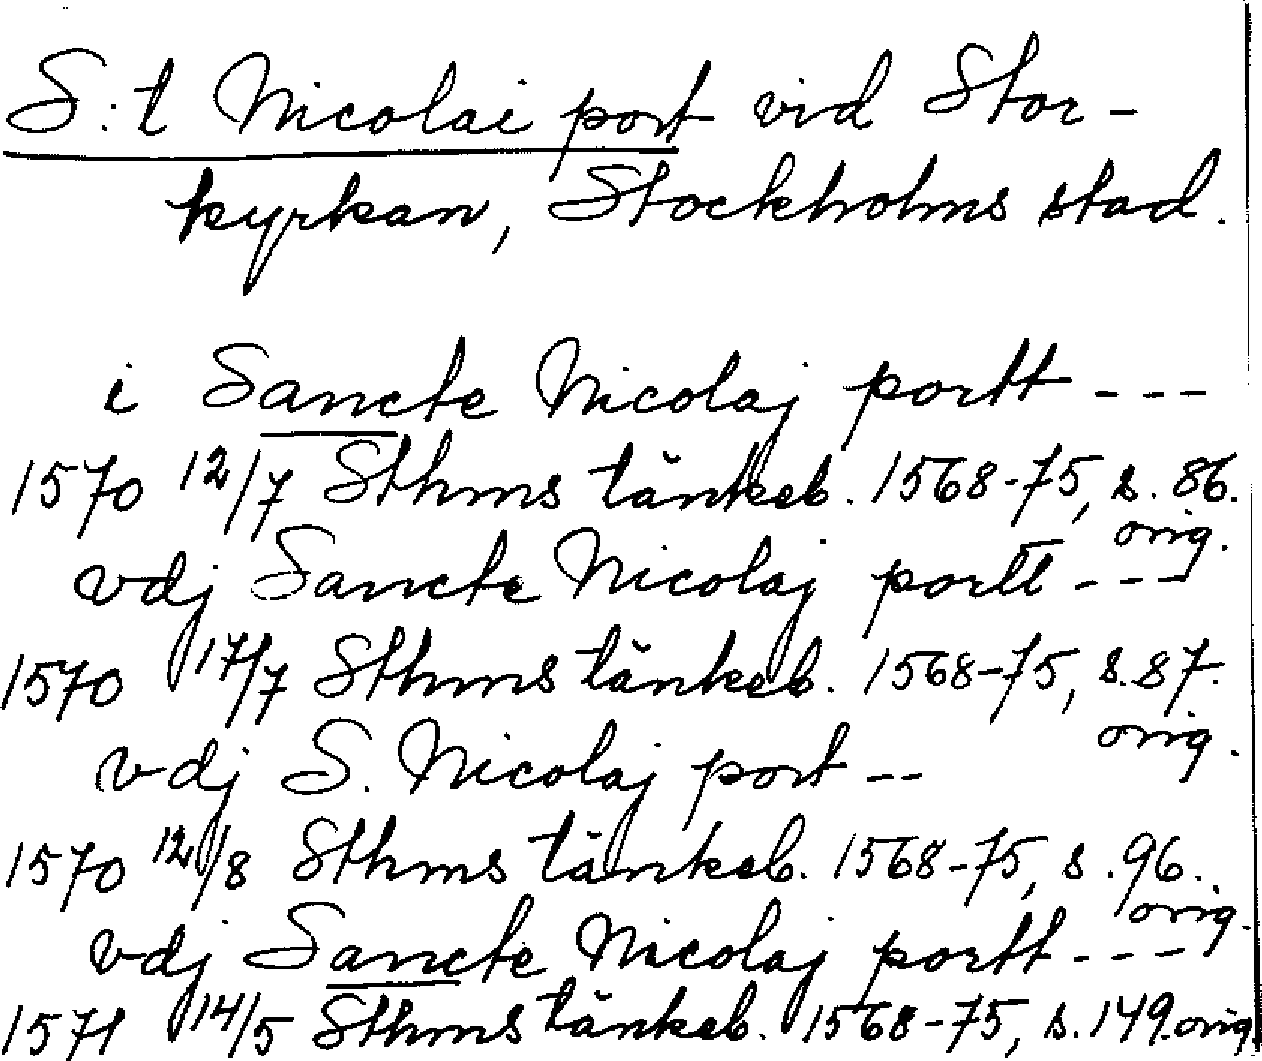 S:t Nicolai port vid Stor-
kyrkan, Stockholms stad.
i Sancte Nicolaj portt ---
1570 12/7 Sthms tänkeb. 1568-75, s. 86.
orig.
vdj Sancte Nicolaj portt ---
1570 17/7 Sthms tänkeb. 1568-75, s. 87.
orig.
vdj S. Nicolaj port --
1570 12/8 Sthms tänkeb. 1568-75, s. 96.
orig.
vdj Sancte Nicolaj portt ---
1571 14/5 Sthms tänkeb. 1568-75, s. 149. orig